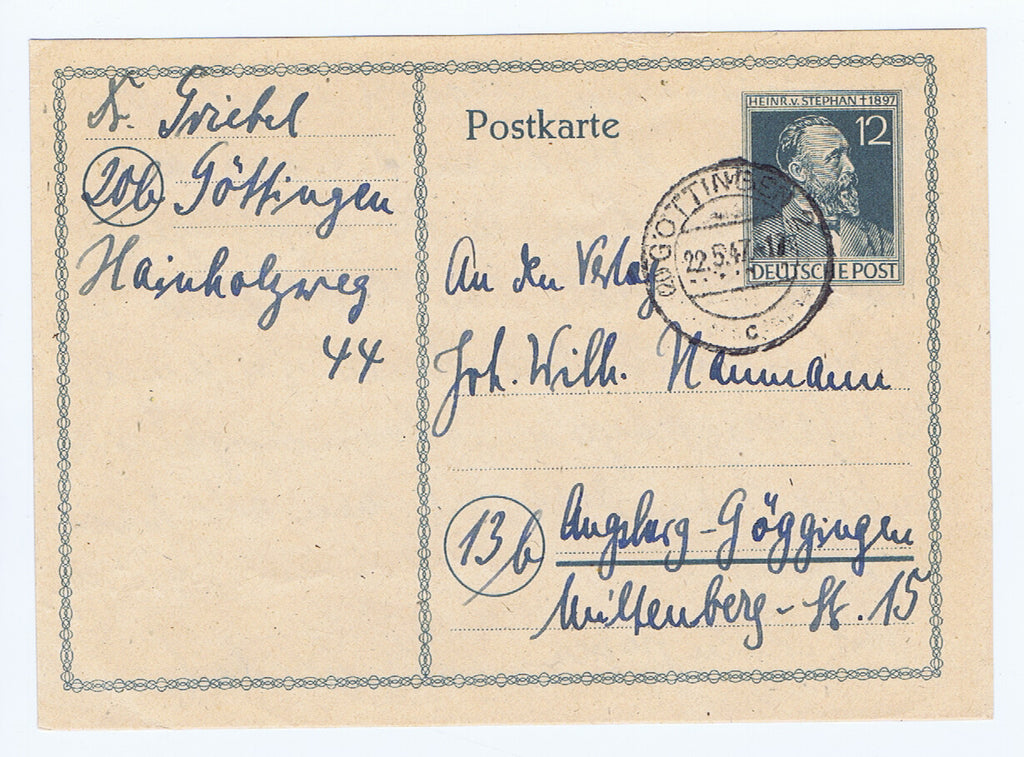 Dr. Griebel
20b Göttingen
Hainholzweg
44
Postkarte
HEINR.v.STEPHAN †1897
12
DEUTSCHE POST
GÖTTINGEN
22.5.47
c
An den Verlag
Joh. Wilh. Naumann
13b Augsburg-Göggingen
Miltenberg-St. 15